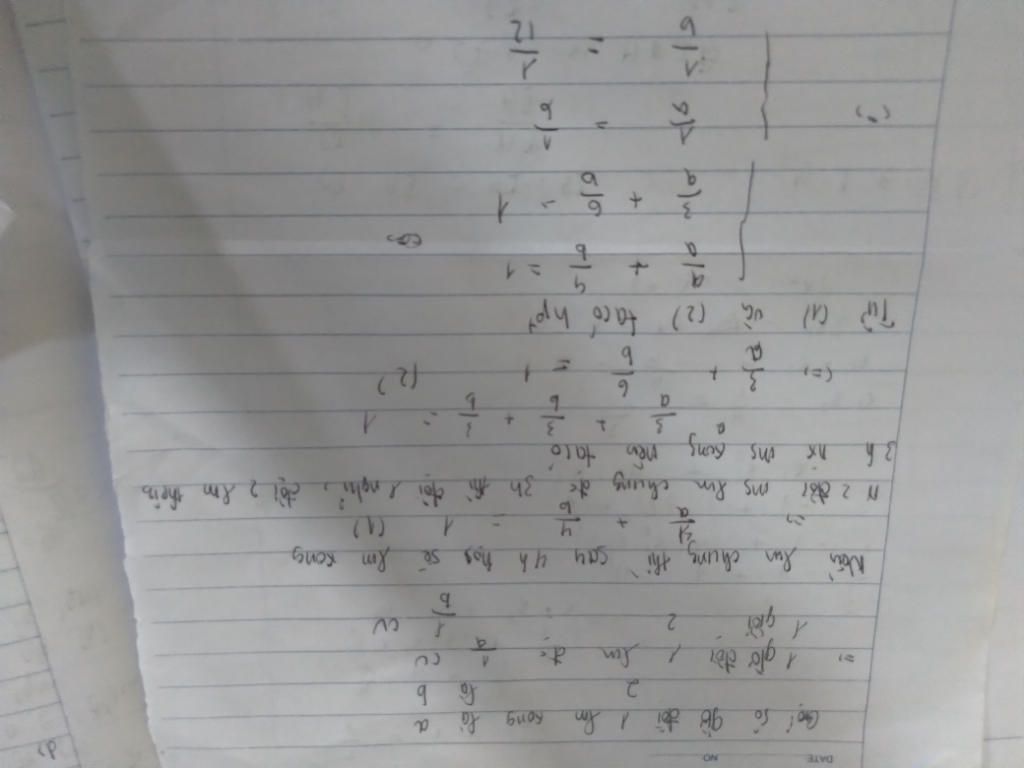 DATE NO
d)
Gọi số giờ đội 1 lm xong là a
2 là b
=> 1 giờ đội 1 lm đc 1/a cv
1 giờ 2 1/b cv
Nếu lm chung thì sau 4h họ sẽ lm xong
=> 4/a + 4/b = 1 (1)
N 2 đội ms lm chung đc 3h thì đội 1 nghỉ, đội 2 lm thêm
3h nx ms xong nên ta có
3/a + 3/b + 3/b = 1
(=) 3/a + 6/b = 1 (2)
Từ (1) và (2) ta có hpt
4/a + 4/b = 1
3/a + 6/b = 1
(=) 1/a = 1/6
1/b = 1/12